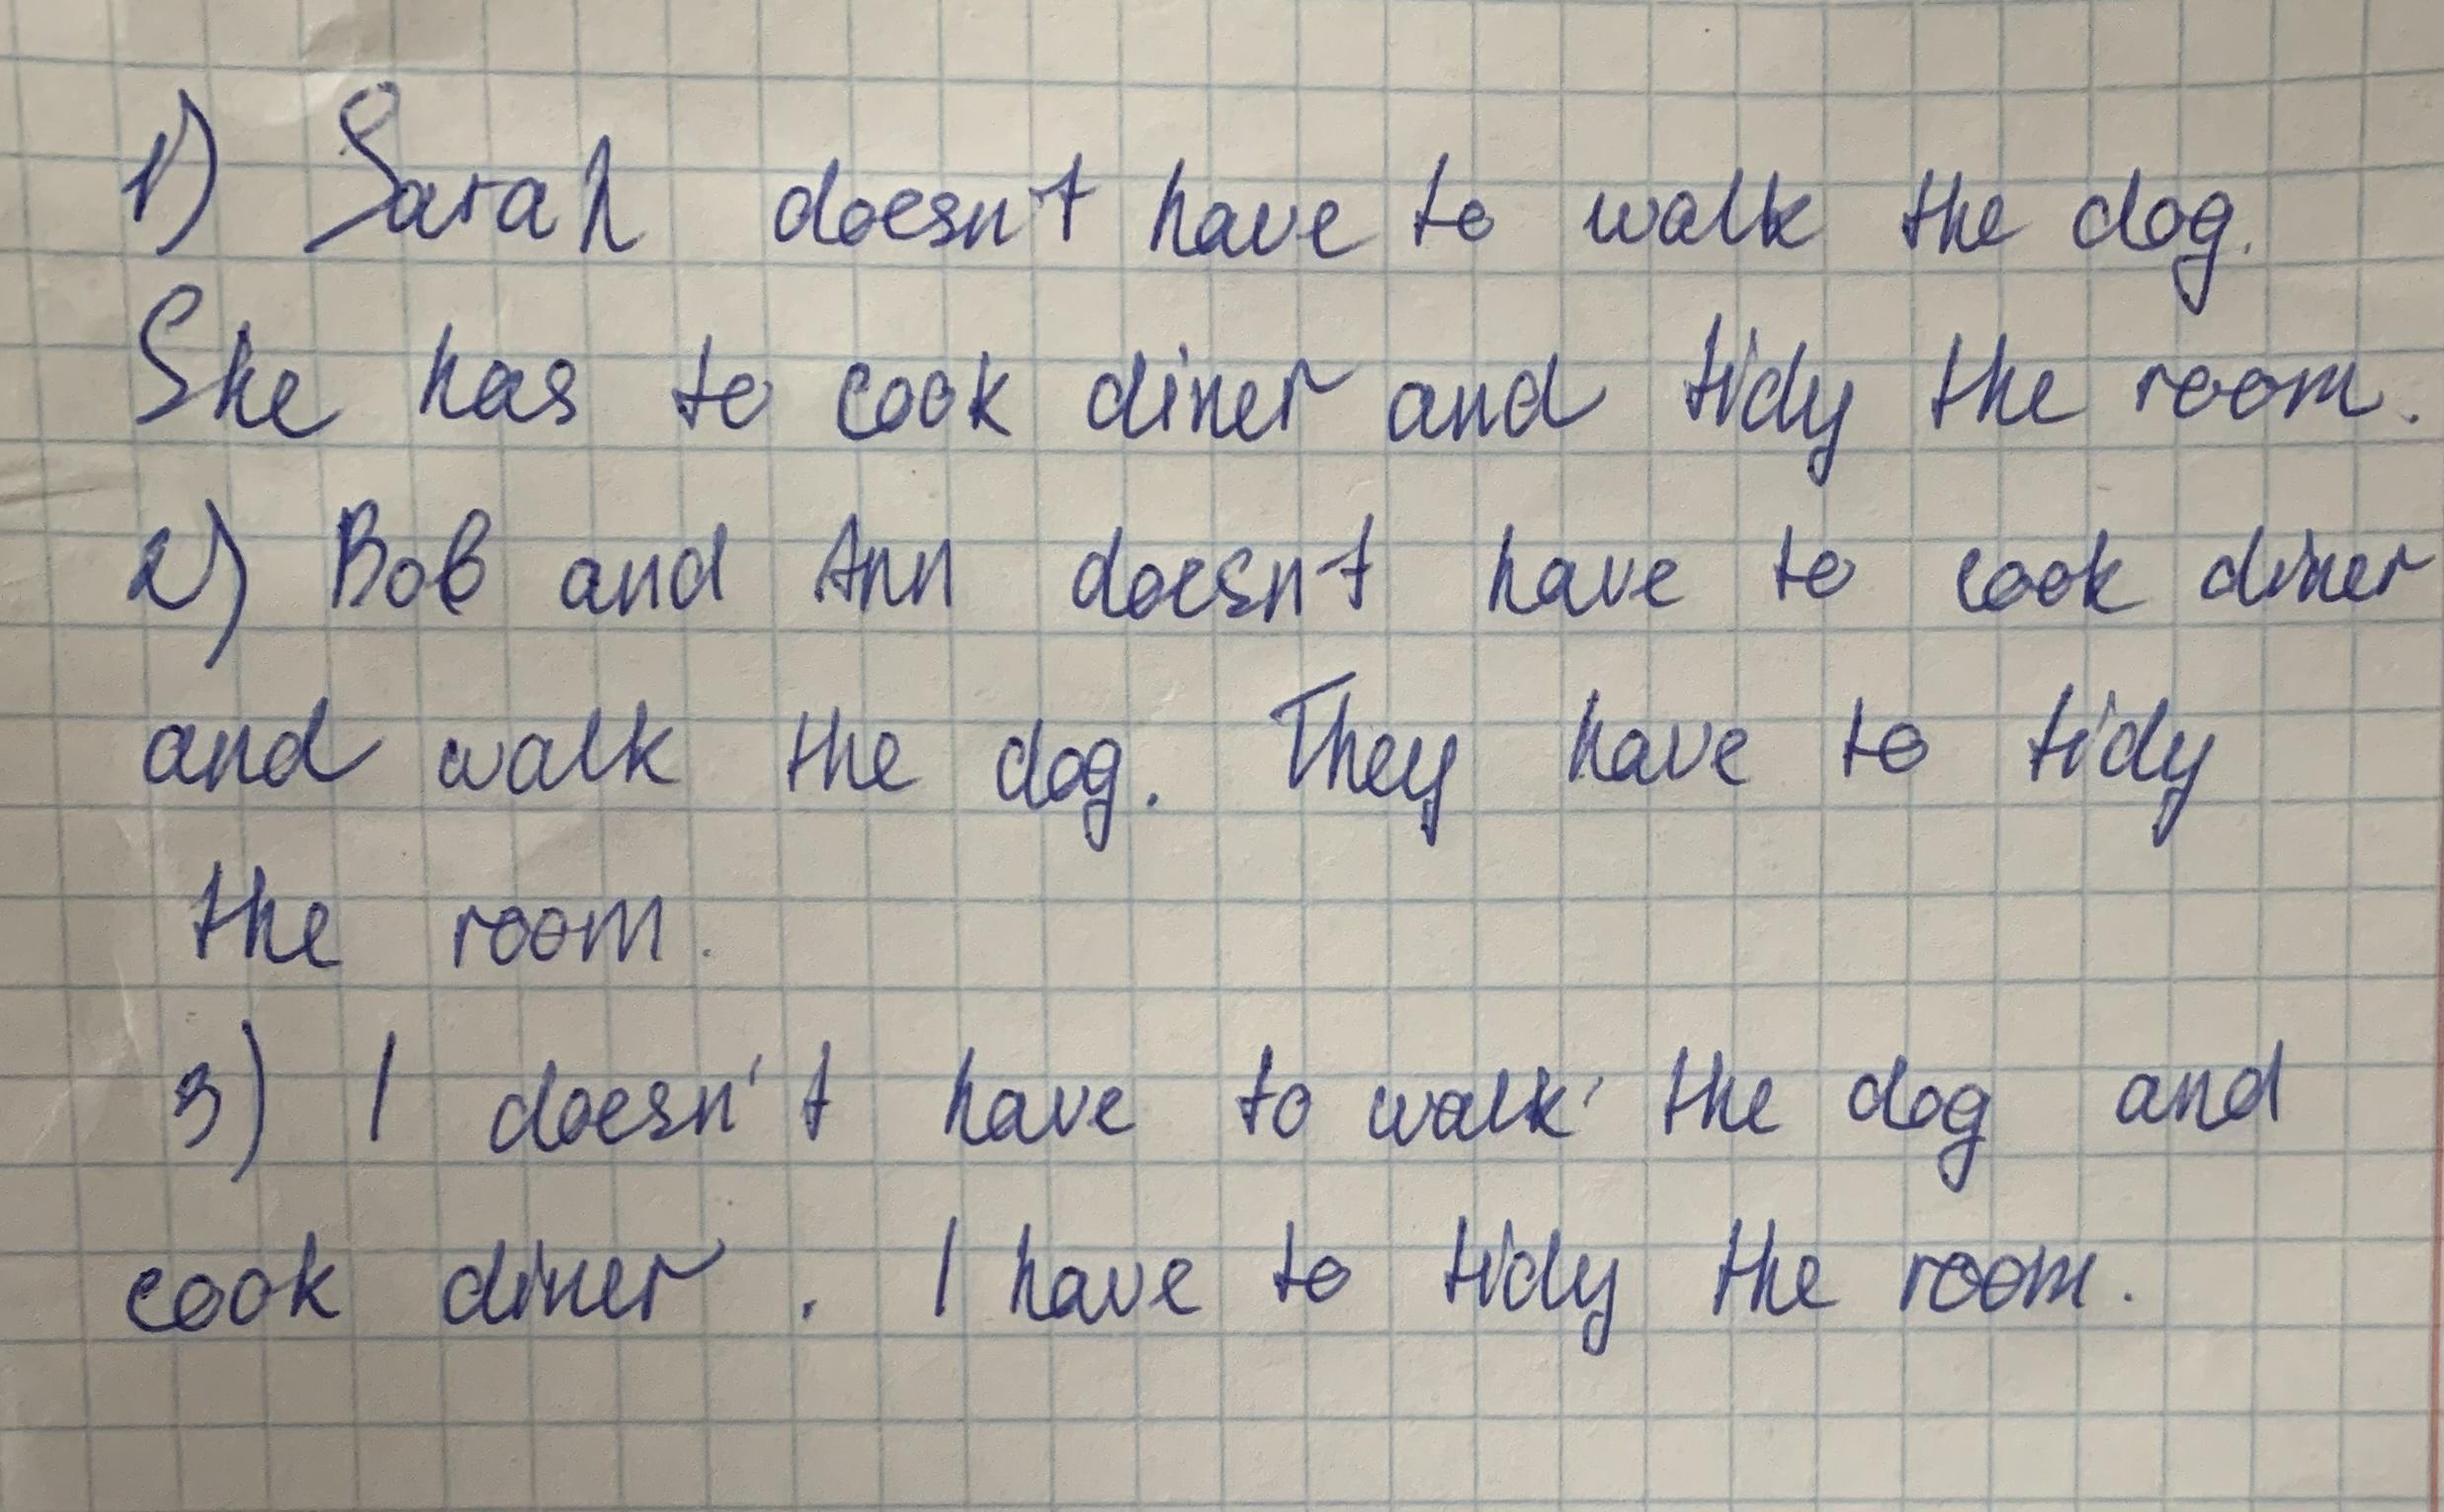 1) Sarah doesn't have to walk the dog.
She has to cook diner and tidy the room.
2) Bob and Ann doesn't have to cook diner
and walk the dog. They have to tidy
the room.
3) I doesn't have to walk the dog and
cook diner. I have to tidy the room.